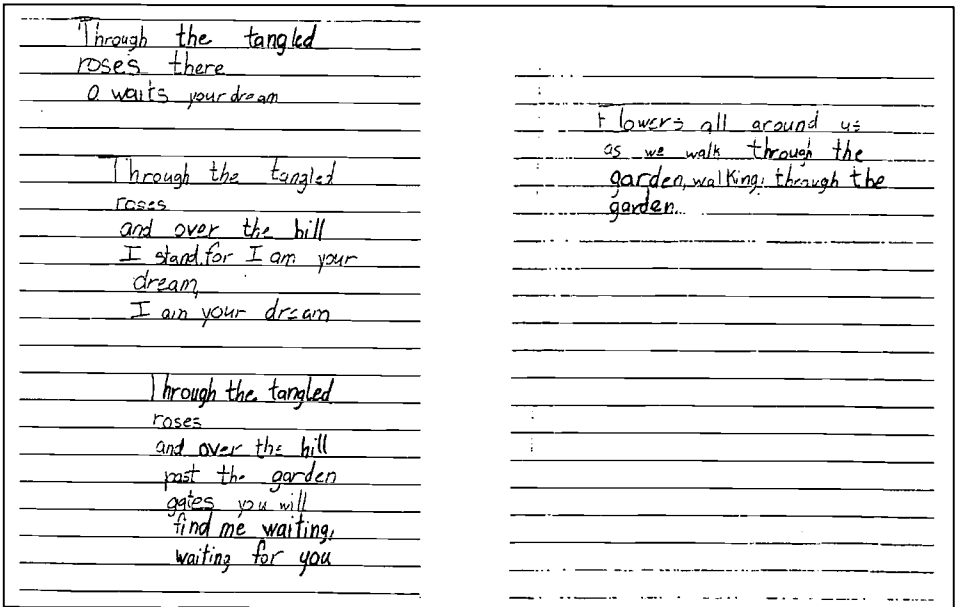 Through the tangled
roses there
a waits your dream
Through the tangled
roses
and over the hill
I stand, for I am your
dream,
I am your dream
Through the tangled
roses
and over the hill
past the garden
gates you will
find me waiting,
waiting for you
Flowers all around us
as we walk through the
garden, walking, through the
garden.